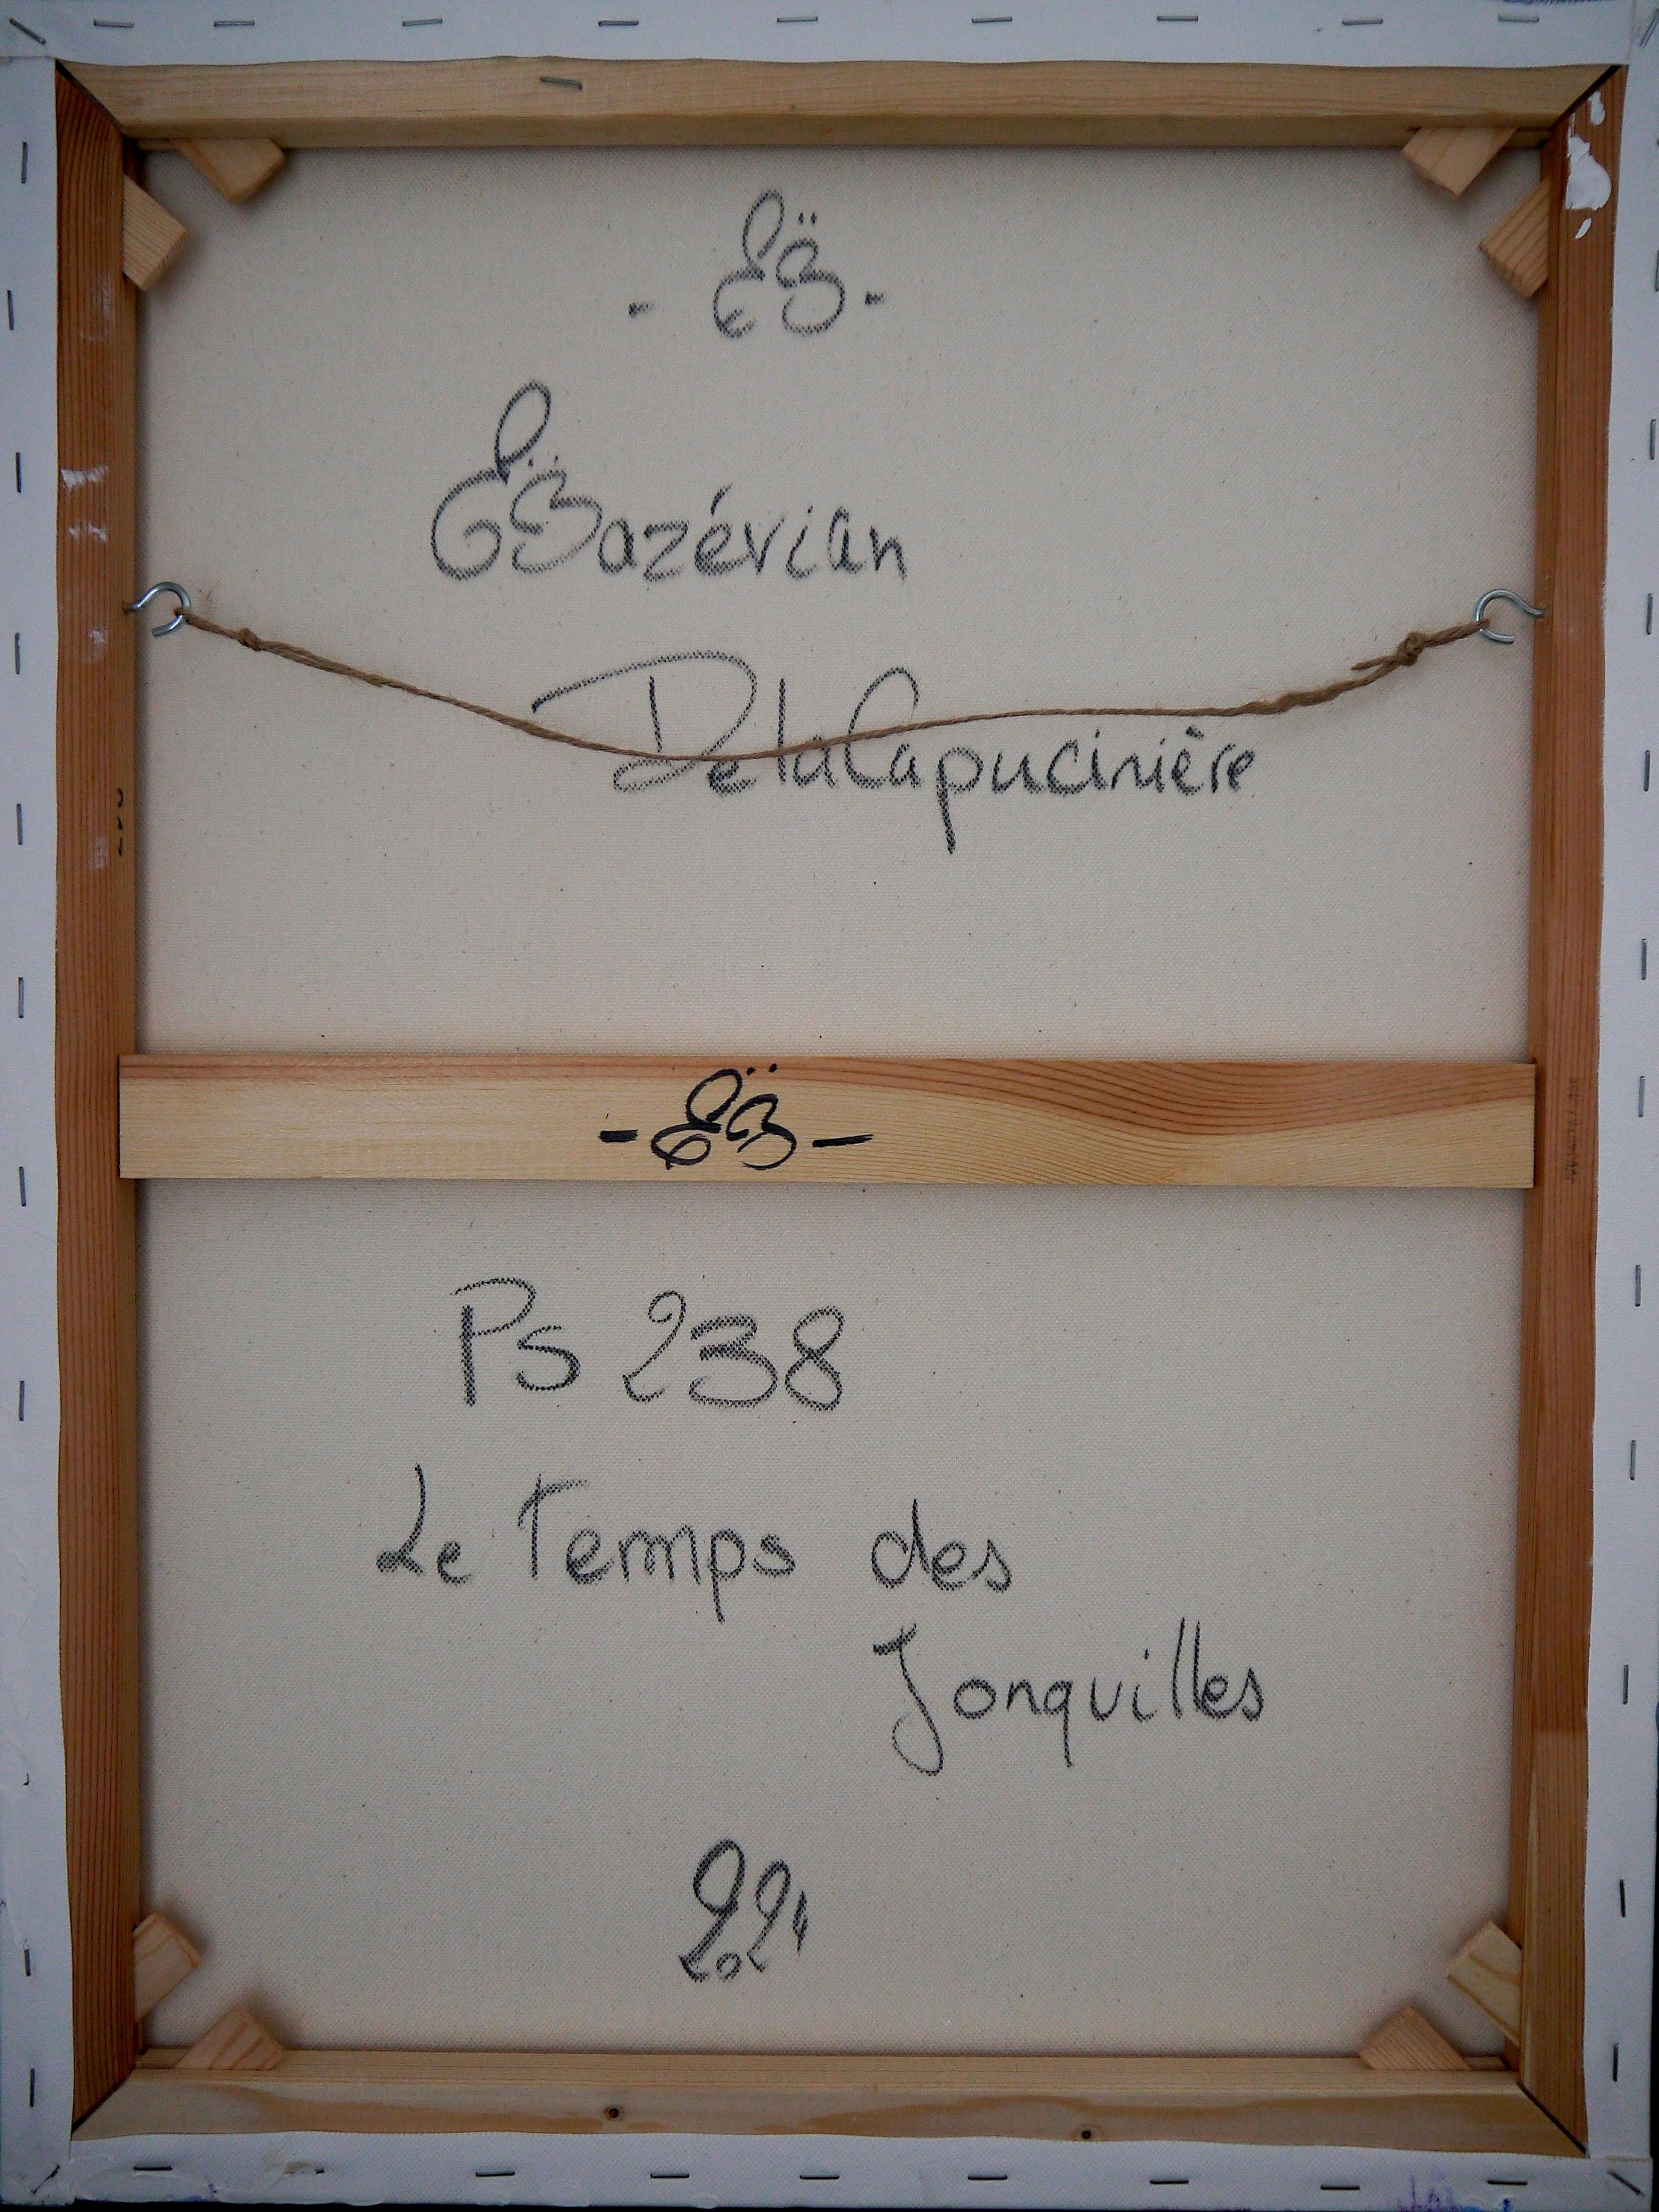 - EB̈ -
EB̈azérian
DelaCapucinière
- EB̈ -
Ps 238
Le Temps des
Jonquilles